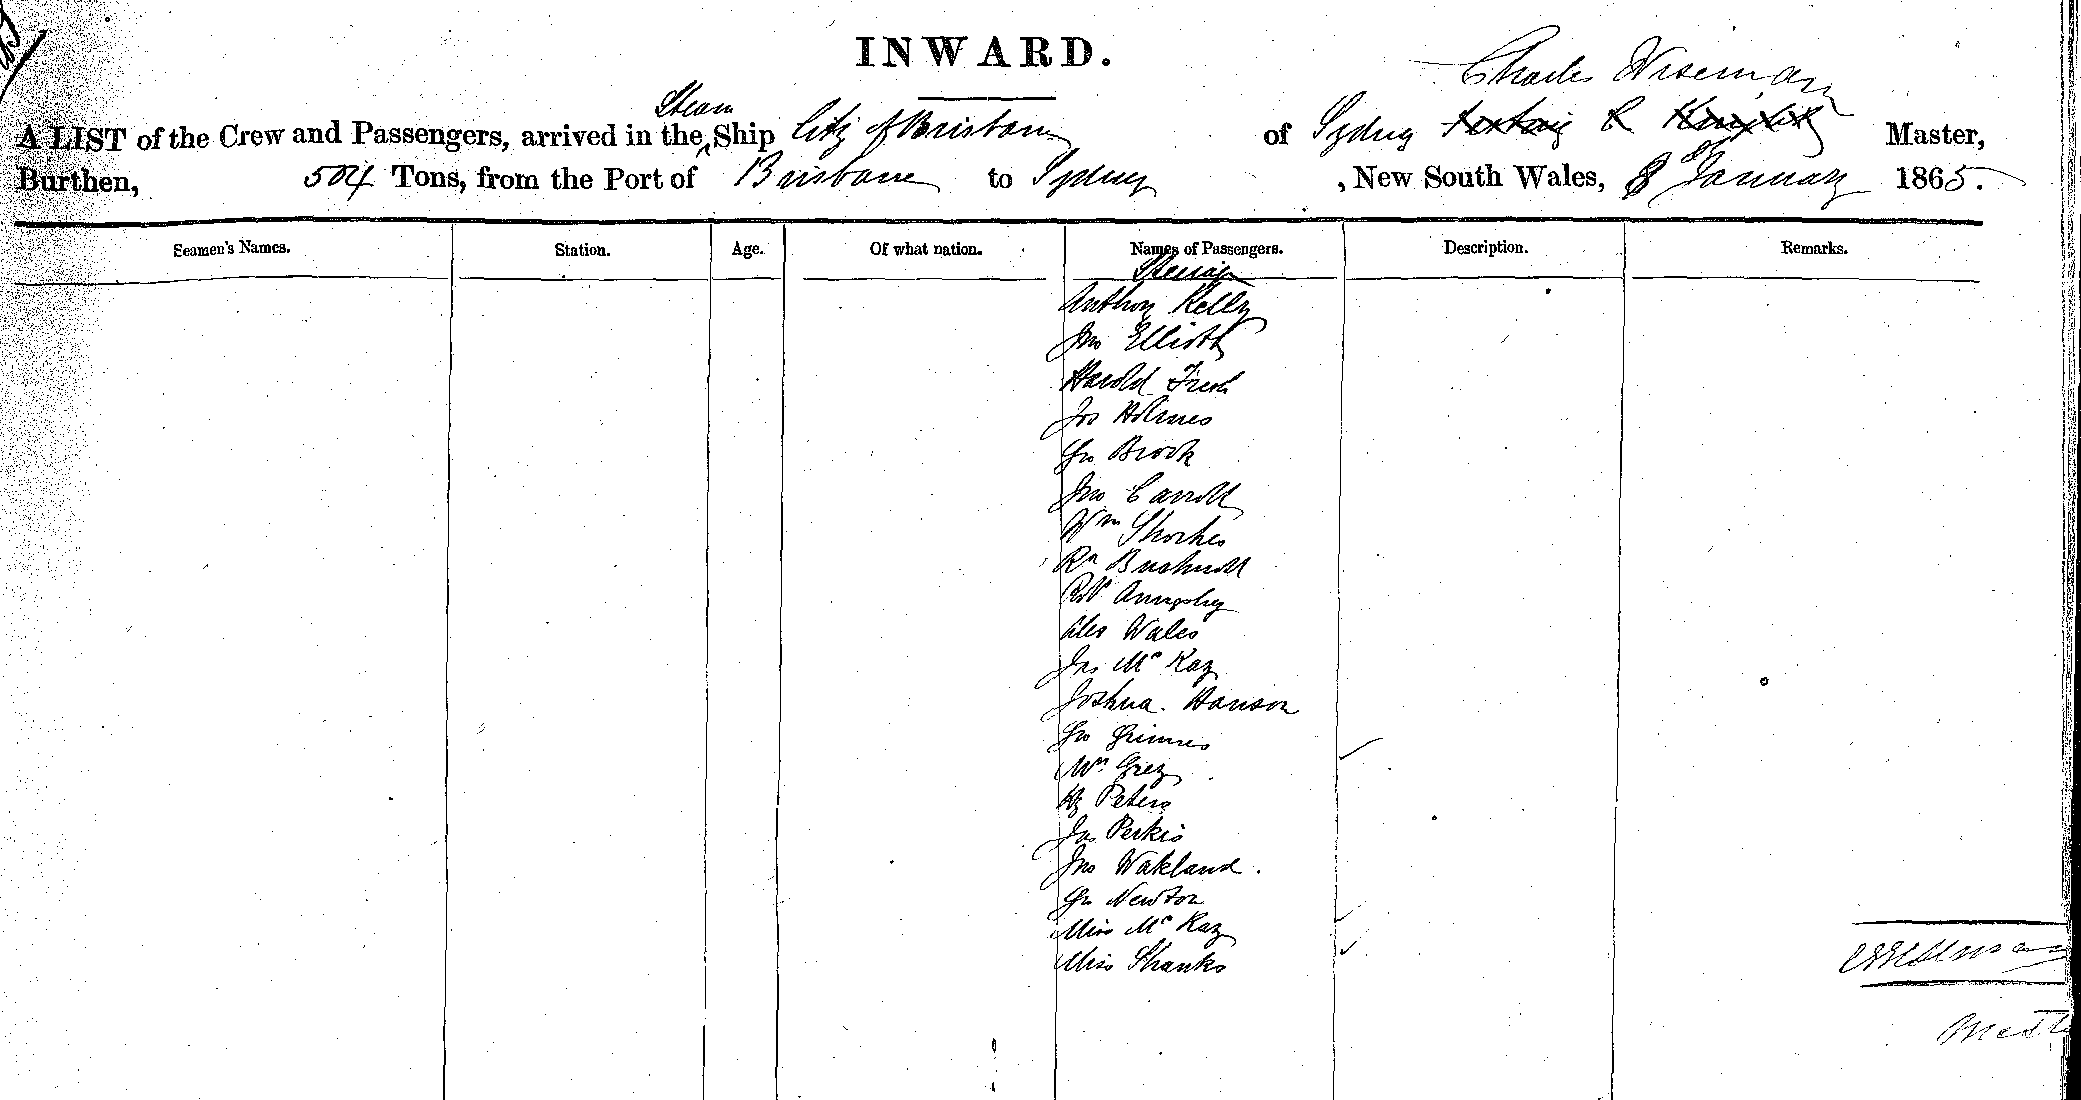 INWARD.
Charles Wiseman
Steam
A LIST of the Crew and Passengers, arrived in the Ship City of Brisbane of Sydney R Knight Master,
Burthen, 504 Tons, from the Port of Brisbane to Sydney , New South Wales, 8 January 1865.
Seamen's Names. Station. Age. Of what nation. Names of Passengers. Description. Remarks.
Steerage
Anthony Kelly
Jno Elliott
Harold
Jos Holmes
Geo Brook
Jno Carroll
Wm
Rd
Robt Annesley
Alex Wales
Jas Mc Kay
Joshua. Hanson
Geo Grimes
Wm Grey
Hy Peters
Jas Perkis
Jno Wakland.
Geo Newton
Miss Mc Kay
Miss Shanks